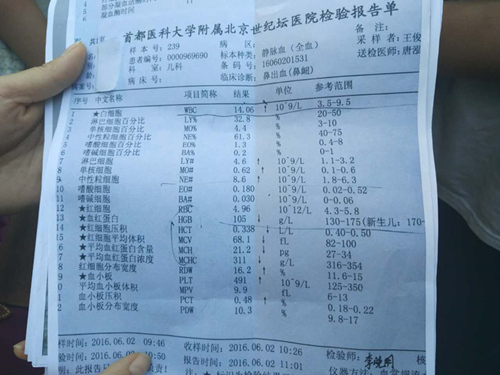 首都医科大学附属北京世纪坛医院检验报告单
样本号：239 病区： 标本种类：静脉血（全血） 备注：
患者编号：0000969690 科室：儿科 条码号：16060201531 采样者：王俊
病床号： 临床诊断：鼻出血(鼻衄) 送检医师：唐
中文名称 项目简称 结果 单位 参考范围
1 ★白细胞 WBC 14.06 ↑ 10^9/L 3.5-9.5
2 淋巴细胞百分比 LY% 32.8 % 20-50
3 单核细胞百分比 MO% 4.4 % 3-10
4 中性粒细胞百分比 NE% 61.3 % 40-75
5 嗜酸细胞百分比 EO% 1.3 % 0.4-8
6 嗜碱细胞百分比 BA% 0.2 % 0-1
7 淋巴细胞 LY# 4.6 ↑ 10^9/L 1.1-3.2
8 单核细胞 MO# 0.62 ↑ 10^9/L 0.1-0.6
9 中性粒细胞 NE# 8.6 ↑ 10^9/L 1.8-6.3
10 嗜酸细胞 EO# 0.180 10^9/L 0.02-0.52
11 嗜碱细胞 BA# 0.030 10^9/L 0-0.06
12 ★红细胞 RBC 4.96 10^12/L 4.3-5.8
13 ★血红蛋白 HGB 105 ↓ g/L 130-175(新生儿：170-
14 ★红细胞压积 HCT 0.338 ↓ L/L 0.40-0.50
15 ★红细胞平均体积 MCV 68.1 ↓ fL 82-100
★平均血红蛋白含量 MCH 21.2 ↓ pg 27-34
★平均血红蛋白浓度 MCHC 311 ↓ g/L 316-354
红细胞分布宽度 RDW 16.2 ↑ % 11.6-15
★血小板 PLT 491 ↑ 10^9/L 125-350
平均血小板体积 MPV 9.9 fL 6-13
血小板压积 PCT 0.48 ↑ % 0.18-0.22
血小板分布宽度 PDW 10.3 % 9.8-17
2016.06.02 09:46 收样时间：2016.06.02 10:26 检验师：
验时间：2016.06.02 10:50 报告时间：2016.06.02 11:01